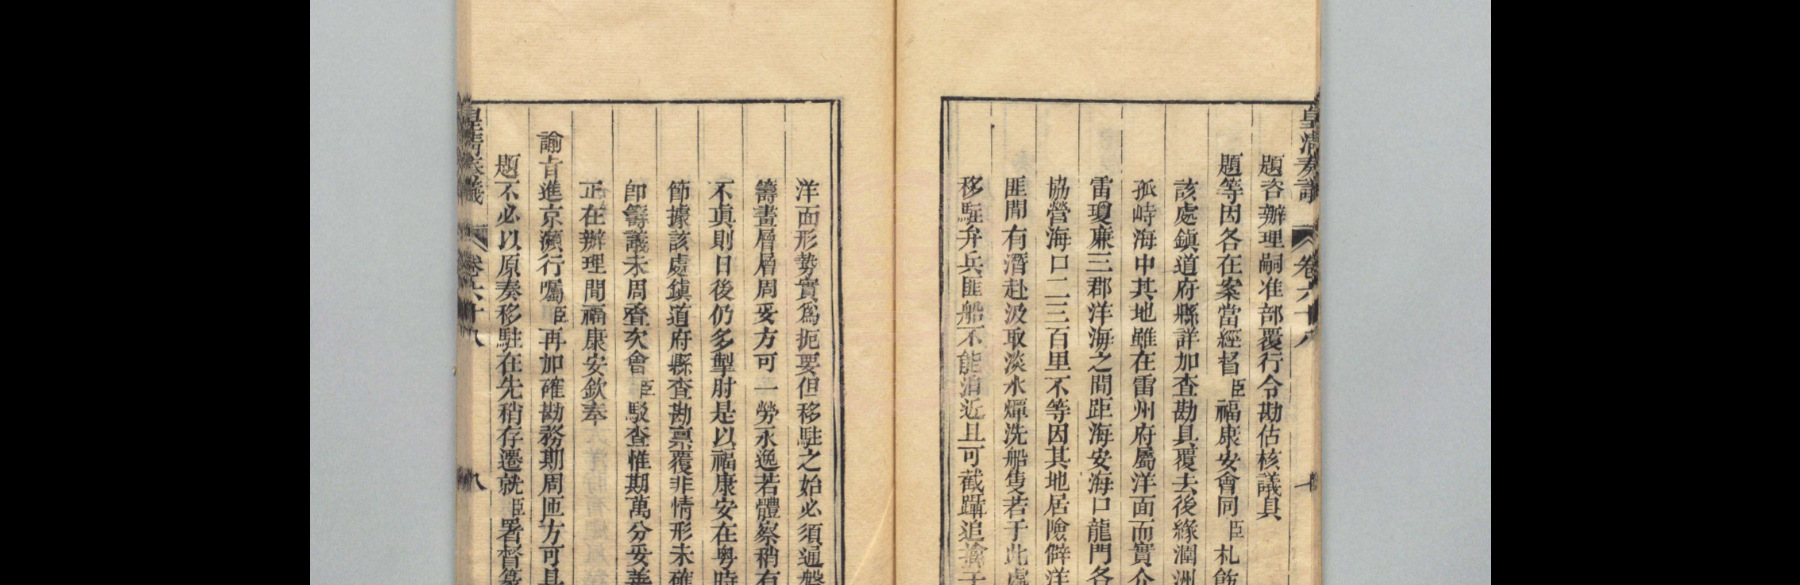 皇清奏議 卷六十八
題咨辦理嗣准部覆行令勘估核議具
題等因各在案當經督臣福康安會同臣札飭
該處鎮道府縣詳加查勘具覆去後緣潿洲
孤峙海中其地雖在雷州府屬洋面而實介
雷瓊廉三郡洋海之間距海安海口龍門各
協營海口二三百里不等因其地居險僻洋
匪間有潛赴汲取淡水燂洗船隻若于此處
移駐弁兵匪船不能洎近且可截躡追擒于
洋面形勢實爲扼要但移駐之始必須通盤
籌畫層層周妥方可一勞永逸若體察稍有
不真則日後仍多掣肘是以福康安在粵時
節據該處鎮道府縣查勘稟覆非情形未確
卽籌議未周疊次會臣駁查惟期萬分妥善
正在辦理間福康安欽奉
諭旨進京瀕行囑臣再加確勘務期周匝方可具
題不必以原奏移駐在先稍存遷就臣署督篆
皇清奏議 卷六十八 八